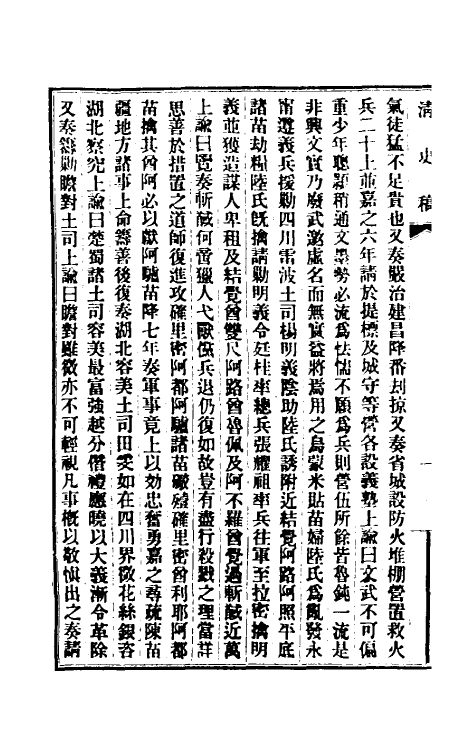 清史稿
氣徒猛不足貴也又奏嚴治建昌降番刦掠又奏省城設防火堆棚營置救火
兵二十上並嘉之六年請於提標及城守等營各設義塾上諭曰文武不可偏
重少年聰穎稍通文墨勢必流爲怯懦不願爲兵則營伍所餘皆魯鈍一流是
非興文實乃廢武激虛名而無實益將焉用之烏蒙米貼苗婦陸氏爲亂發永
甯遵義兵援勦四川雷波土司楊明義陰助陸氏誘附近結覺阿路阿照平底
諸苗劫糧陸氏旣擒請勦明義令廷桂率總兵張耀祖率兵往軍至拉密擒明
義並獲造謀人卑租及結覺酋雙尺阿路酋魯佩及阿不羅酋覺過斬馘近萬
上諭曰覽奏斬馘何啻獵人弋獸儻兵退仍復如故豈有盡行殺戮之理當詳
思善於措置之道師復進攻確里密阿都阿驢諸苗礮殪確里密酋利耶阿都
苗擒其酋阿必以獻阿驢苗降七年奏軍事竟上以効忠奮勇嘉之尋疏陳苗
疆地方諸事上命籌善後復奏湖北容美土司田旻如在四川界徵花絲銀咨
湖北察究上諭曰楚蜀諸土司容美最富強越分僭禮應曉以大義漸令革除
又奏籌勦瞻對土司上諭曰瞻對雖微亦不可輕視凡事概以敬愼出之奏請